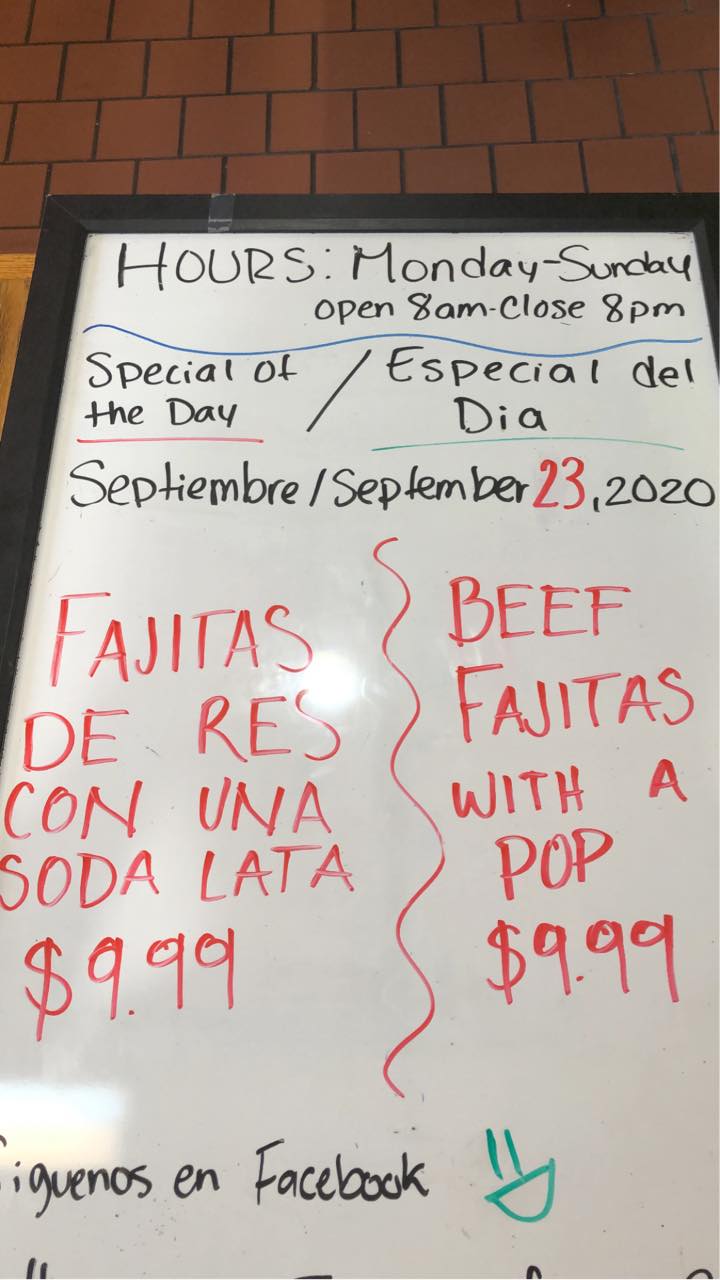 HOURS: Monday-Sunday
open 8am-Close 8pm
Special of the Day / Especial del Dia
Septiembre/September 23, 2020
FAJITAS
DE RES
CON UNA
SODA LATA
$9.99
BEEF
FAJITAS
WITH A
POP
$9.99
iguenos en Facebook